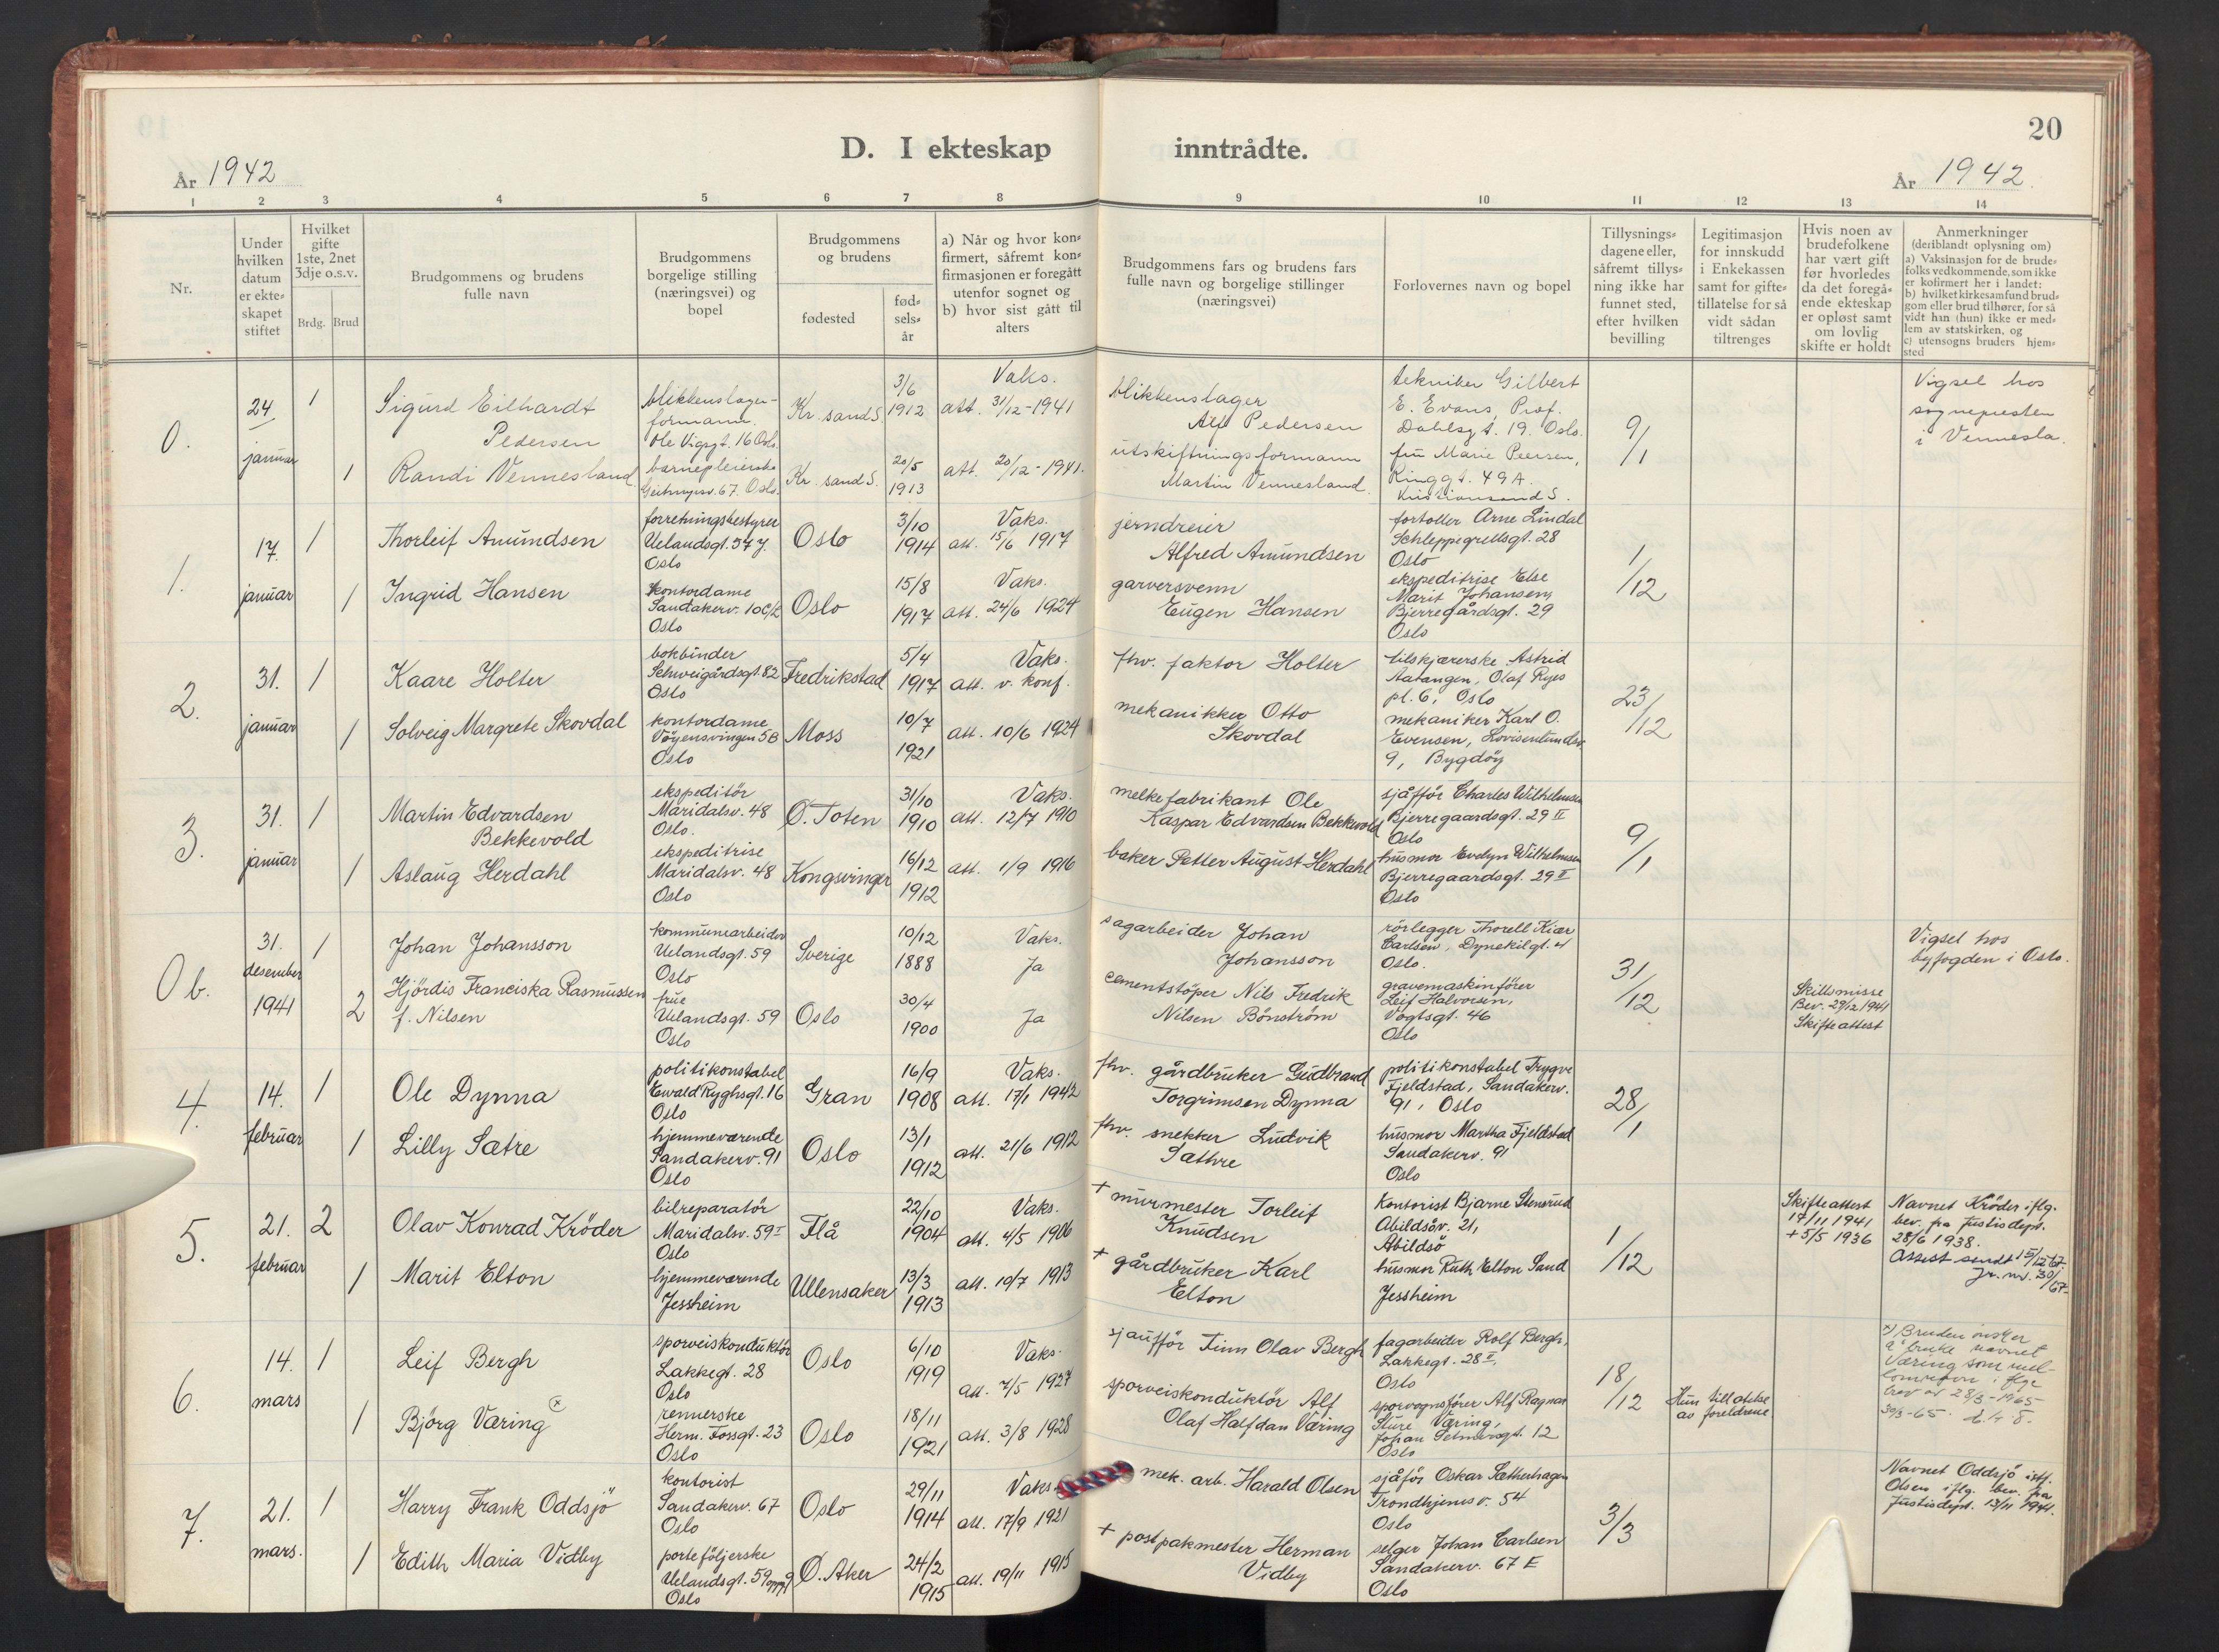 20
D. I ekteskap inntrådte.
År 1942
År 1942.
1 2 3 4 5 6 7 8 9 10 11 12 13 14
Nr.
Under
hvilken
datum
er ekte-
skapet
stiftet
Hvilket
gifte
1ste, 2net
3dje o.s.v.
Brdg. Brud
Brudgommens og brudens
fulle navn
Brudgommens
borgelige stilling
(næringsvei) og
bopel
Brudgommens
og brudens
fødested
fød-
sels-
år
a) Når og hvor kon-
firmert, såfremt kon-
firmasjonen er foregått
utenfor sognet og
b) hvor sist gått til
alters
Brudgommens fars og brudens fars
fulle navn og borgelige stillinger
(næringsvei)
Forlovernes navn og bopel
Tillysnings-
dagene eller,
såfremt tillys-
ning ikke har
funnet sted,
efter hvilken
bevilling
Legitimasjon
for innskudd
i Enkekassen
samt for gifte-
tillatelse for så
vidt sådan
tiltrenges
Hvis noen av
brudefolkene
har vært gift
før hvorledes
da det foregå-
ende ekteskap
er opløst samt
om lovlig
skifte er holdt
Anmerkninger
(deriblandt oplysning om)
a) Vaksinasjon for de brude-
folks vedkommende, som ikke
er kofirmert her i landet:
b) hvilket kirkesamfund brud-
gom eller brud tilhører, for så
vidt han (hun) ikke er med-
lem av statskirken, og
c) utensogns bruders hjem-
sted
0.
24/
januar
1
Sigurd Eilhardt
Pedersen
blikkenslager-
formann.
Ole Vigsgt. 16 Oslo.
Kr. sand S.
3/6
1912
Vaks.
att. 31/12-1941
blikkenslager
Alf Pedersen
tekniker Gilbert
E. Evans, Prof.
Dahlsgt. 19. Oslo.
9/1
Vigsel hos
sognepresten
i Vennesla.
1
Randi Vennesland.
barnepleierske
Geitmyrsv. 67. Oslo.
Kr. sand S.
20/5
1913
att. 20/12-1941.
utskiftningsformann
Martin Vennesland.
fru Marie Peersen,
Ringgt. 49 A.
Kristiansand S.
1.
17.
januar
1
Thorleif Amundsen
forretningsbestyrer
Uelandsgt. 57 J.
Oslo
Oslo
3/10
1914
Vaks.
att. 15/6 1917
jerndreier
Alfred Amundsen
fortoller Arne Lindal
Schleppegrellsgt. 28
Oslo
1/12
1
Ingrid Hansen
kontordame
Sandakerv. 10 c/k
Oslo
Oslo
15/8
1917
Vaks.
att. 24/6 1924
garversvenn
Eugen Hansen
ekspeditrise Else
Marit Johansen,
Bjerregårdsgt. 29
Oslo
2.
31.
januar
1
Kaare Holter
bokbinder
Schweigårdsgt. 82
Oslo
Fredrikstad
5/4
1917
Vaks.
att. v. konf.
fhv. faktor Holter
tilskjærerske Astrid
Aatangen, Olaf Ryes
pl. 6, Oslo
23/12
1
Solveig Margrete Skovdal
kontordame
Vøyensvingen 5B
Oslo
Moss
10/7
1921
att. 10/6 1924
mekanikker Otto
Skovdal
mekaniker Karl O.
Evensen, Lovisenlundsv.
9, Bygdöy
3.
31.
januar
1
Martin Edvardsen
Bekkevold
ekspeditör
Maridalsv. 48
Oslo.
Ø. Toten
31/10
1910
Vaks.
att. 12/7 1910
melkefabrikant Ole
Kaspar Edvardsen Bekkevold
sjåfför Charles Wilhelmsen
Bjerregaardsgt. 29 II
Oslo
9/1
1
Aslaug Herdahl
ekspeditrise
Maridalsv. 48
Oslo
Kongsvinger
16/12
1912
att. 1/9 1916
baker Petter August Herdahl
husmor Evelyn Wilhelmsen
Bjerregaardsgt. 29 II
Oslo
0 b.
31.
desember
1941
1
Johan Johansson
kommunearbeider
Uelandsgt. 59
Oslo
Sverige
10/12
1888
Vaks.
Ja
sagarbeider Johan
Johansson
rörlegger Thorell Kiær
Carlsen, Dynekilgt. 4
Oslo.
31/12
Vigsel hos
byfogden i Oslo.
2
Hjördis Franciska Rasmussen
f. Nilsen
frue
Uelandsgt. 59
Oslo
Oslo
30/4
1900
Ja
cementstöper Nils Fredrik
Nilsen Bönström
gravemaskinförer
Leif Halvorsen,
Vogtsgt. 46
Oslo
Skillsmisse
Bev. 29/12 1941
Skifteattest
4.
14.
februar
1
Ole Dynna
politikonstabel
Ewald Ryghsgt. 16
Oslo
Gran
16/9
1908
Vaks.
att. 17/1 1942
fhv. gårdbruker Gudbrand
Torgrimsen Dynna
politikonstabel Trygve
Fjeldstad, Sandakerv.
91, Oslo
28/1
1
Lilly Sætre
hjemmeværende
Sandakerv. 91
Oslo
Oslo
13/1
1912
att. 21/6 1912
fhv. snekker Ludvik
Sæthre
husmor Martha Fjeldstad
Sandakerv. 91
Oslo
5.
21.
februar
2
Olav Konrad Kröder
bilreparatör
Maridalsv. 59 I
Oslo
Flå
22/10
1904
Vaks.
att. 4/5 1906
+ murmester Torleif
Knudsen
Kontorist Bjarne Stensrud
Abildsöv. 21,
Abildsö
1/12
Skifteattest
17/11 1941
+ 5/5 1936
Navnet Kröder iflg.
bev. fra Justisdept.
28/6 1938.
Attest sendt 15/12 67
Jr. nr. 30/67.
1
Marit Elton
hjemmeværende
Jessheim
Ullensaker
13/3
1913
att. 19/7 1913
+ gårdbruker Karl
Elton
husmor Ruth Elton Sand
Jessheim
6.
14.
mars
1
Leif Bergh
sporveiskonduktör
Lakkegt. 28
Oslo
Oslo
6/10
1919
Vaks.
att. 7/5 1927
sjaufför Finn Olav Bergh
fagarbeider Rolf Bergh,
Lakkegt. 28 II,
Oslo
18/12
Hun tillatelse
av foreldrene
x) Bruden önsker
å bruke navnet
Væring som mel-
lomnavn i flge
brev av 28/3-1965
30/3-65.
1
Björg Væring x
rennerske
Herm. Fossgt. 23
Oslo
Oslo
18/11
1921
att. 3/8 1928
sporveiskonduktör Alf
Olaf Halfdan Væring
sporvognsförer Alf Ragnar
Sture Væring,
Johan Selmersgt. 12
Oslo
7.
21.
mars.
1
Harry Frank Oddsjö
kontorist
Sandakerv. 67
Oslo
Oslo
29/11
1914
Vaks.
att. 17/9 1921
mek. arb. Harald Olsen
sjåför Oskar Sætherhagen
Trondhjems v. 54
Oslo
3/3
Navnet Oddsjö istf.
Olsen iflg. bev. fra
Justisdept. 13/11 1941.
1
Edith Maria Vidby
porteföljerske
Uelandsgt. 59 oppg. 9
Oslo
Ø. Aker
24/2
1915
att. 19/11 1915
+ postpakmester Herman
Vidby
selger Johan Carlsen
Sandakerv. 67 E
Oslo